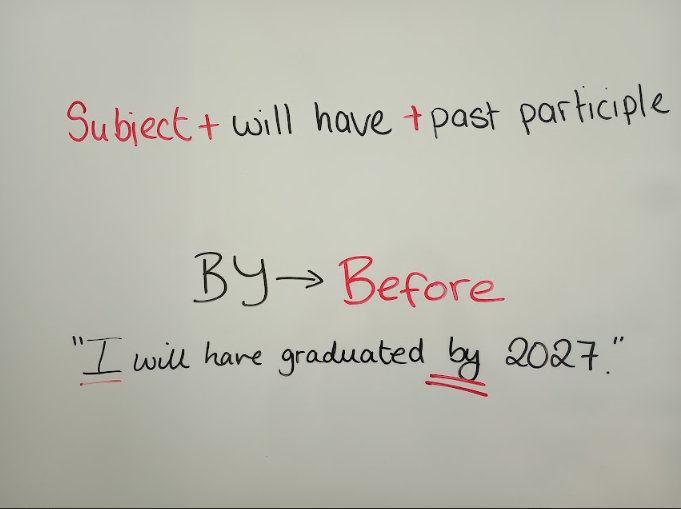 Subject + will have + past participle
BY → Before
"I will have graduated by 2027."